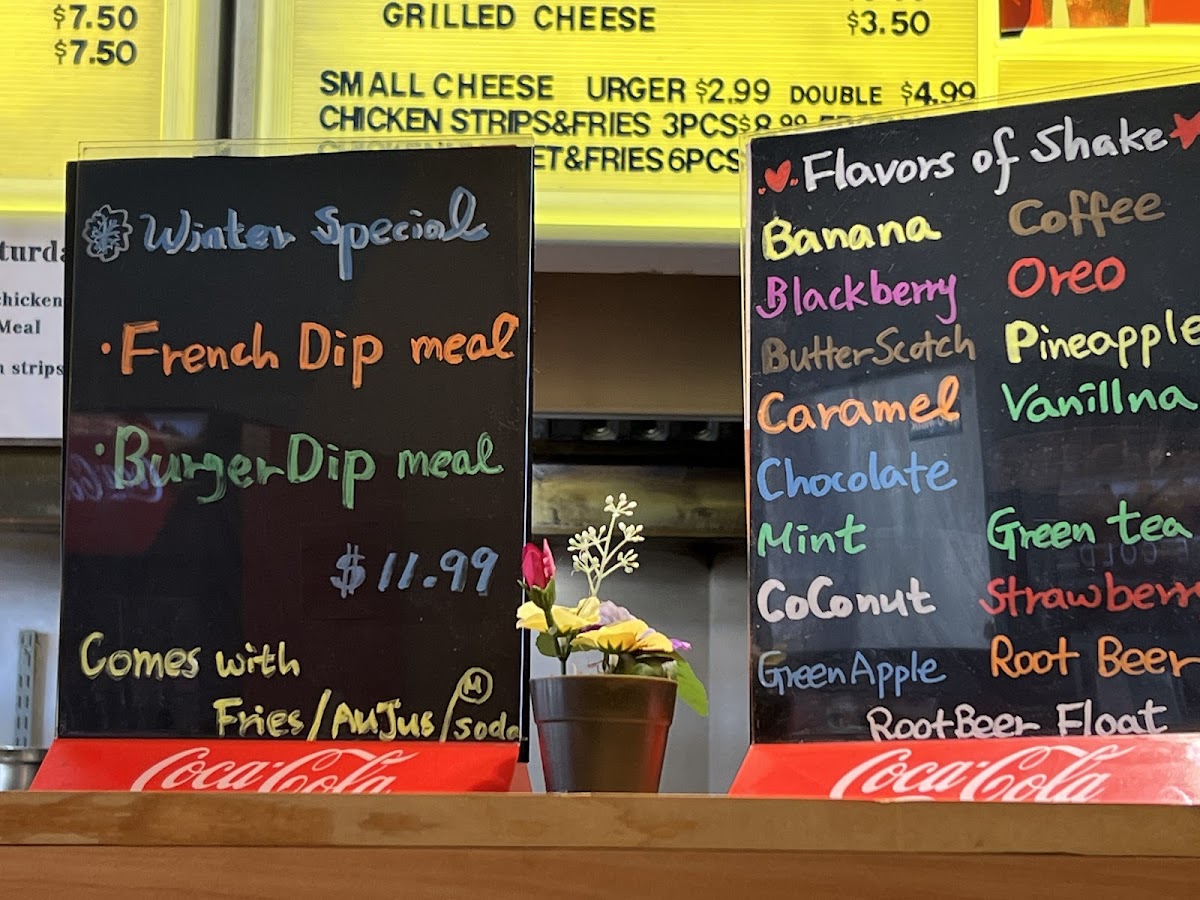 $7.50
$7.50
GRILLED CHEESE $3.50
SMALL CHEESE URGER $2.99 DOUBLE $4.99
CHICKEN STRIPS&FRIES 3PCS$8.99
ET&FRIES 6PCS
chicken
Meal
strips
Winter Special
• French Dip meal
• Burger Dip meal
$11.99
Comes with
Fries/AuJus/Ⓜ soda
Coca-Cola
Flavors of Shake
Banana Coffee
Blackberry Oreo
ButterScotch Pineapple
Caramel Vanillna
Chocolate
Mint Green tea
CoConut Strawberry
Green Apple Root Beer
RootBeer Float
Coca-Cola